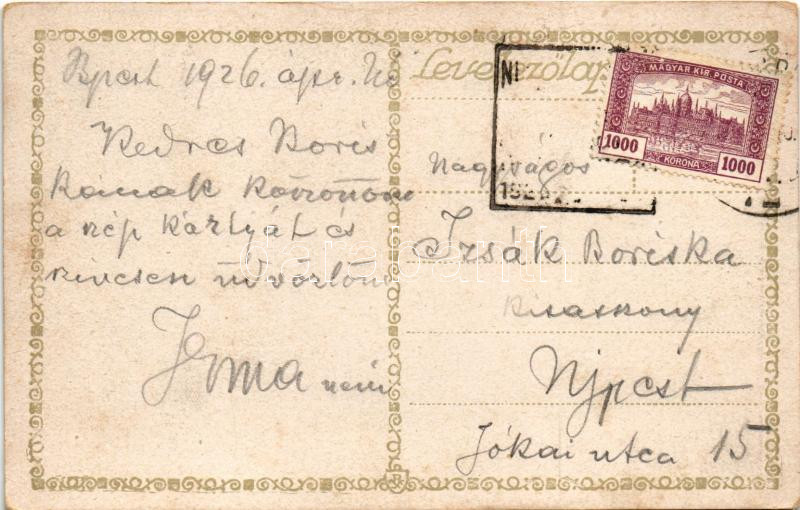 Bpest 1926. ápr. 26
Levelezőlap
MAGYAR KIR. POSTA
1000 1000
KORONA
192
Kedves Boris
kának köszönöm
a szép kártyát és
szívesen üdvözlöm
Irma néni
Nagyságos
Izsák Boriska
kisasszony
Ujpest
Jókai utca 15
darabanth